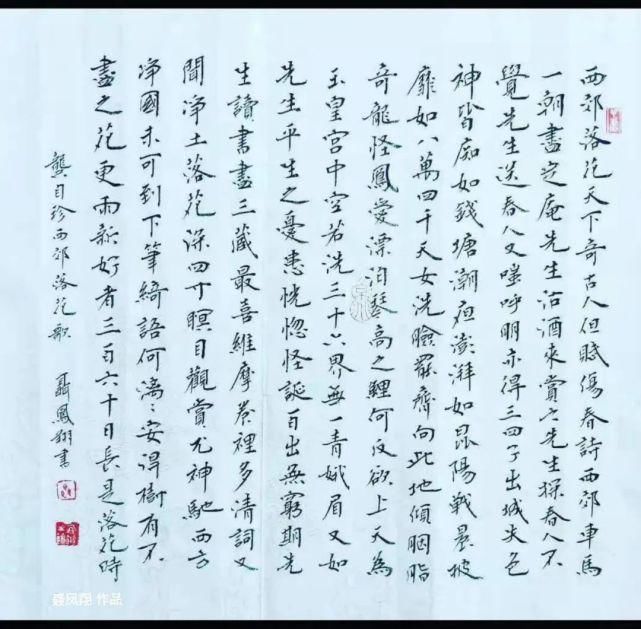 西郊落花天下奇古人但賦傷春詩西郊車馬
一朝盡定庵先生沽酒來賞之先生探春人不
覺先生送春人又嗤呼朋亦得三四子出城失色
神皆痴如錢塘潮夜澎湃如昆陽戰晨披
靡如八萬四千天女洗臉罷齊向此地傾胭脂
奇龍怪鳳愛漂泊琴高之鯉何反欲上天為
玉皇宮中空若洗三十六界無一青娥眉又如
先生平生之憂患恍惚怪誕百出無窮期先
生讀書盡三藏最喜維摩卷裡多清詞又
聞淨土落花深四寸瞑目觀賞尤神馳西方
淨國未可到下筆綺語何漓々安得樹有不
盡之花更雨新好者三百六十日長是落花時
龔自珍西郊落花歌 聶鳳翔書
聂凤翔 作品